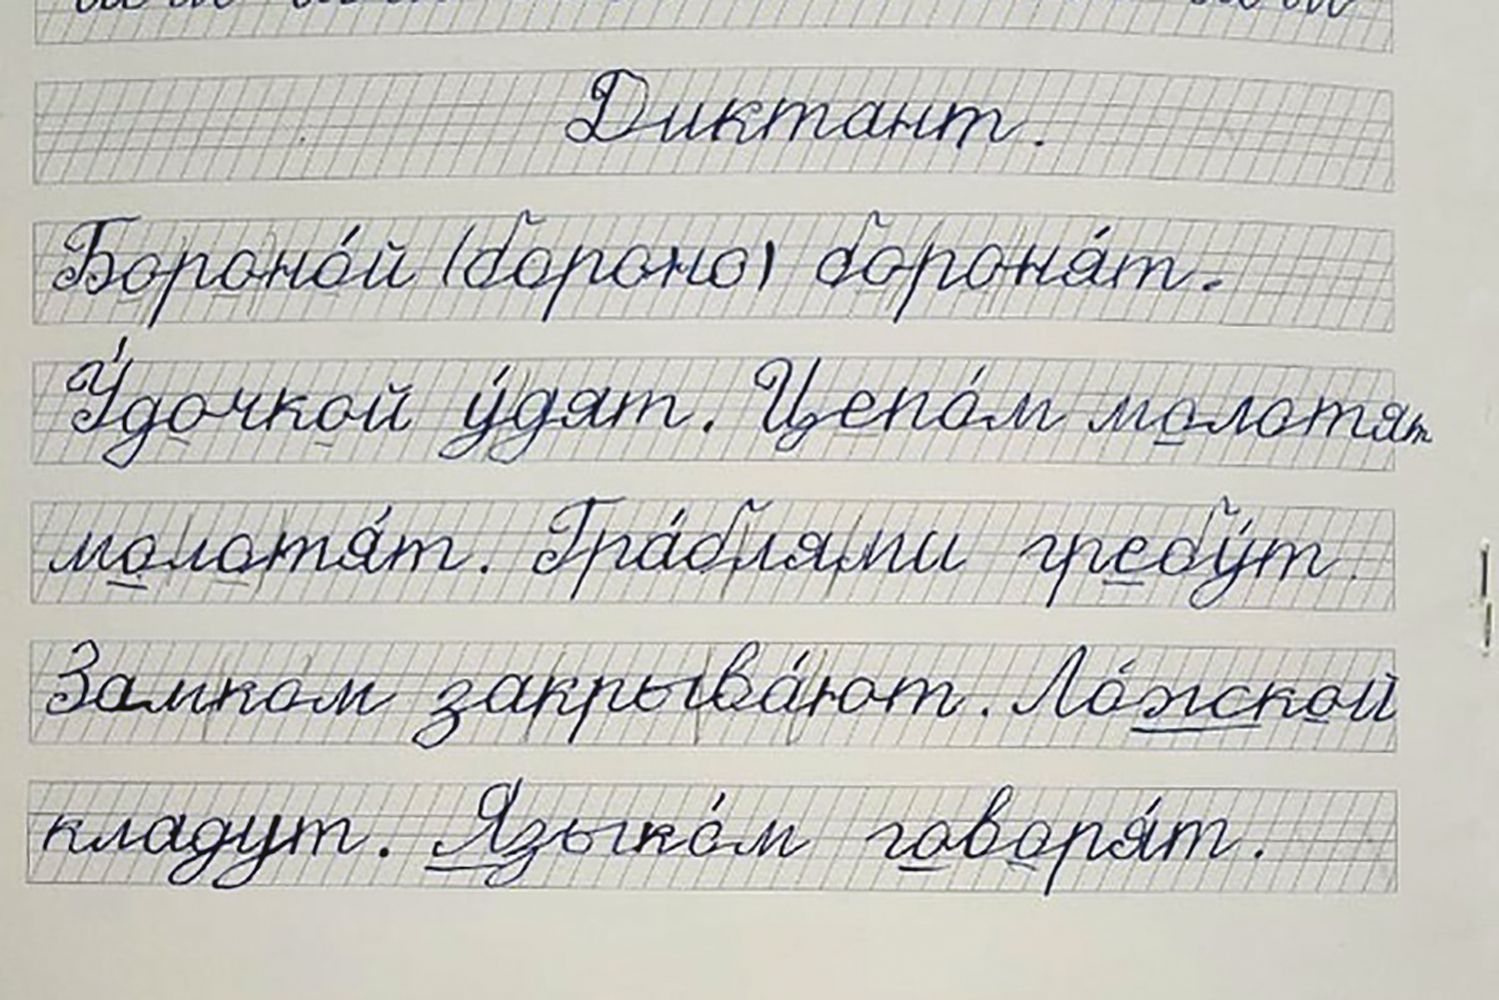 Диктант.
Бороно́й (бороно) бороня́т.
У́дочкой у́дят. Цепо́м молотят
молотя́т. Гра́блями гребу́т.
Замком закрыва́ют. Ло́жской
кладут. Языко́м говоря́т.